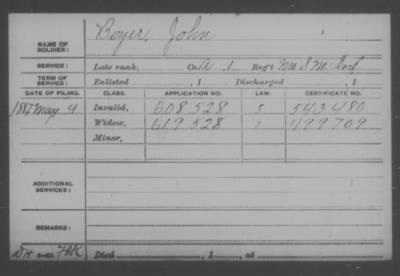 NAME OF SOLDIER: Boyer, John
SERVICE: Late rank, Co. A, 1 Reg't Mo. S. M. Inf
TERM OF SERVICE: Enlisted , 1 Discharged , 1
DATE OF FILING. CLASS. APPLICATION NO. LAW. CERTIFICATE NO.
1887 May 4 Invalid, 608.528 543.480
Widow, 619.528 499709
Minor,
ADDITIONAL SERVICES:
REMARKS:
Died , 1 , at